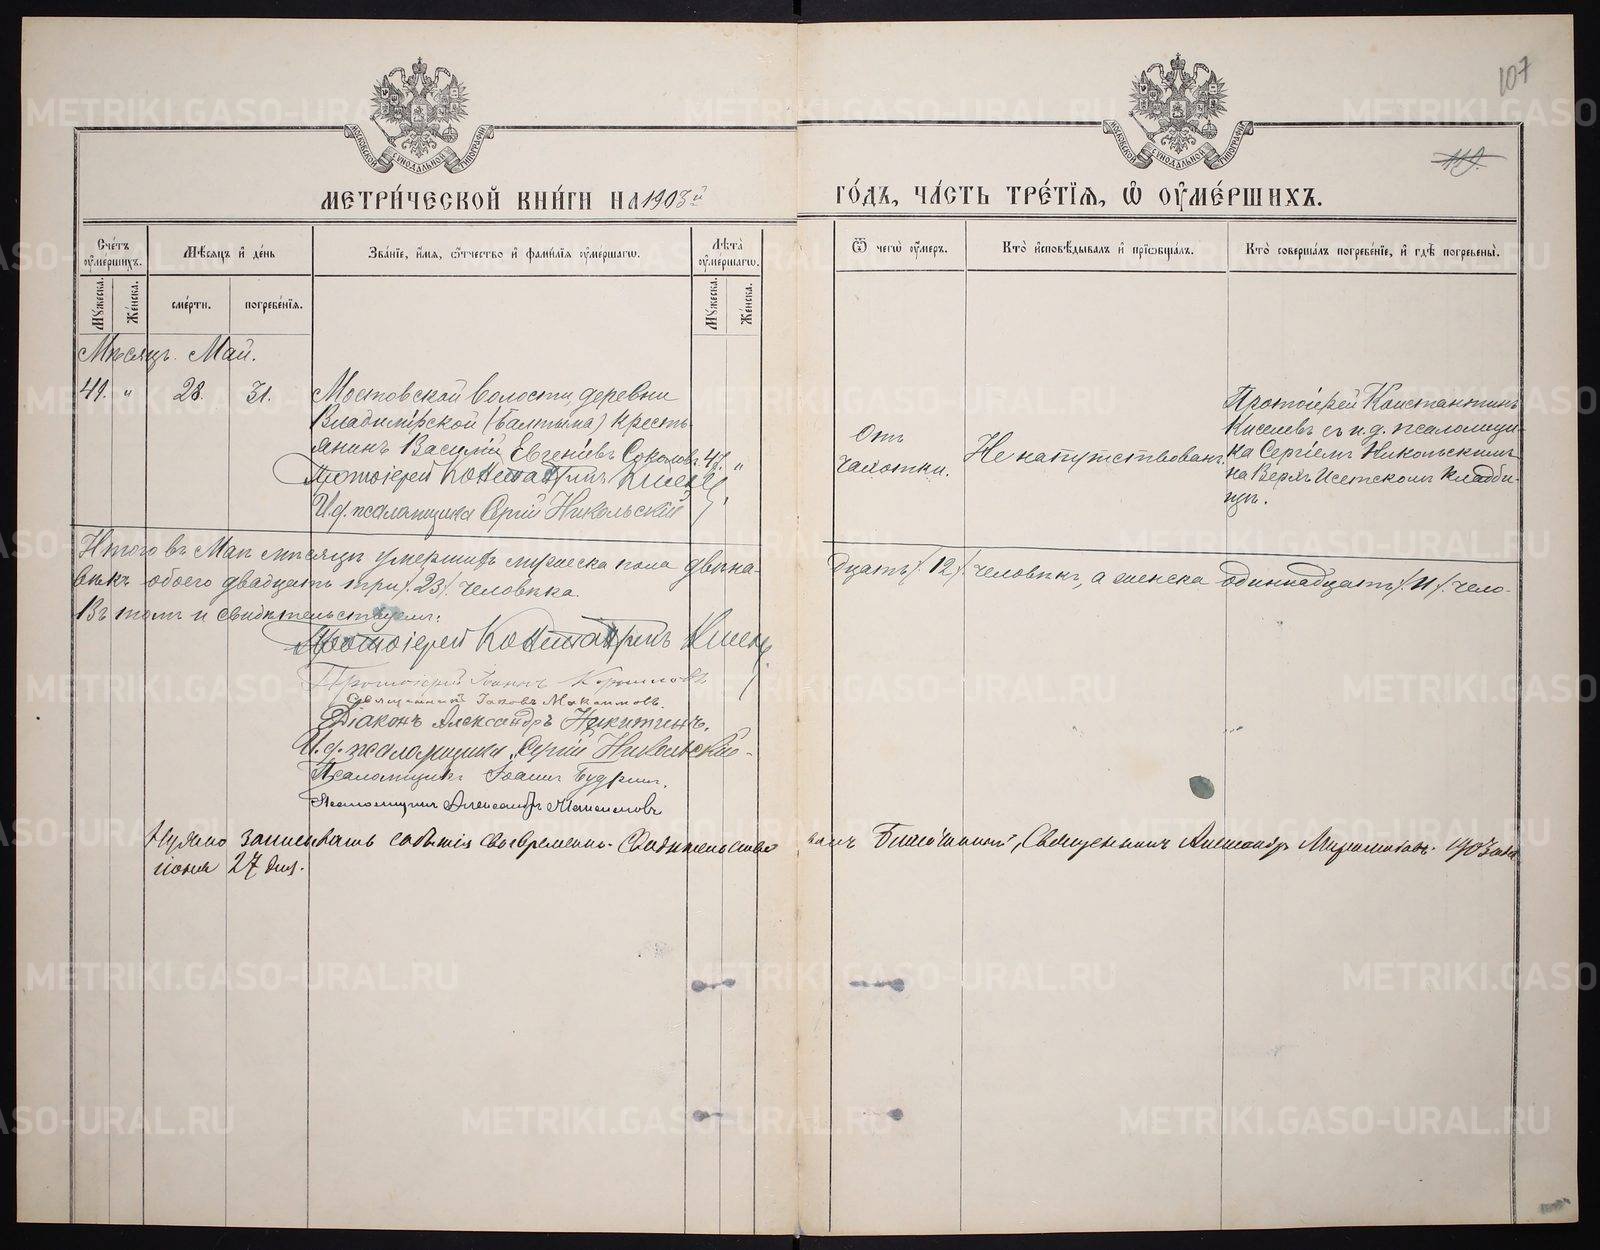 107
119.
МОСКОВСКОЙ СУНОДАЛЬНОЙ ТИПОГРАФІИ
МОСКОВСКОЙ СУНОДАЛЬНОЙ ТИПОГРАФІИ
МЕТРИ́ЧЕСКОЙ КНИ́ГИ НА 1903й
ГО́ДЪ, ЧА́СТЬ ТРЕ́ТІѦ, Ѽ ОУ҆МЕ́РШИХЪ.
Сче́тъ оу҆ме́ршихъ.
Му́жеска.
Же́нска.
Мѣ́сѧцъ и҆ де́нь
сме́рти.
погребе́нїѧ.
Зва́нїе, и҆́мѧ, ѻ҆́тчество и҆ фамі́лїѧ оу҆ме́ршагѡ.
Лѣ́та оу҆ме́ршагѡ.
Му́жеска.
Же́нска.
Ѿ чегѡ̀ оу҆́меръ.
Кто̀ и҆сповѣ́дывалъ и҆ прїѡбща́лъ.
Кто̀ соверша́лъ погребе́нїе, и҆ гдѣ̀ погребены̀.
Мѣсяцъ Май.
41. „ 28. 31. Мостовской волости, деревни
Владимірской (Балтыма) кресть-
янинъ Василій Евгеніевъ Соколовъ 47. „
Протоіерей Константинъ Киселевъ
И. д. псаломщика Сергій Никольскій
Отъ
чахотки.
Не напутствованъ.
Протоіерей Константинъ
Киселевъ съ и. д. псаломщи-
ка Сергіемъ Никольскимъ
на Верхъ Исетскомъ кладби-
щѣ.
Итого въ Маѣ мѣсяцѣ умершихъ мужеска пола двѣна-
дцать /. 12 /. человѣкъ, а женска одиннадцать /. 11 /. чело-
вѣкъ обоего двадцать три /. 23 /. человѣка.
Въ томъ и свидѣтельствуемъ:
Протоіерей Константинъ Киселевъ
Протоіерей Іоаннъ
Священникъ Іаковъ Максимовъ.
Діаконъ Александръ Никитинъ.
И. д. псаломщика Сергій Никольскій
Псаломщикъ Іоаннъ Будринъ.
Псаломщикъ Александръ Максимовъ
Нужно записывать событія своевременно. Свидѣтельство
валъ Благочинный, Священникъ Александръ 1903 года
іюня 27 дня.
METRIKI.GASO-URAL.RU